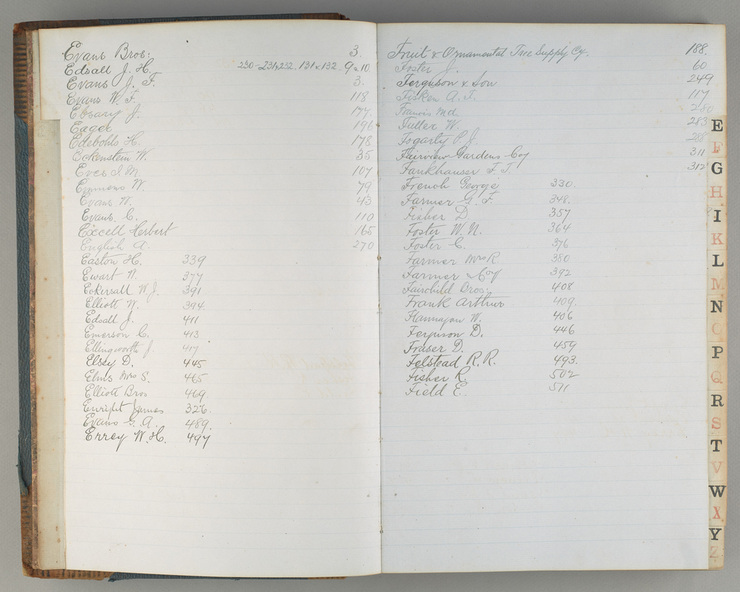 Evans Bros. 3
Edsall J. H. 230-231,232, 131 & 132. 9 & 10
Evans J. F. 3.
Evans W. F. 118
J. 177
Eagel 196
Edebohls H. 178
Eckenstein W. 36
Eves I. M. 107
Emmens W. 79
Evans W. 43
Evans C. 110
Excell Herbert 165
English A. 270
Easton H. 339
Ewart W. 377
Eckersall W. J. 391
Elliott W. 394
Edsall J. 411
Emerson C. 413
Ellingworth J 417
Elsey D. 445
Elms Mrs S. 465
Elliott Bros 469
Enright James 326
Evans G. A. 489.
Errey W. H. 497
Fruit & Ornamental Tree Supply Co. 188.
Foster J. 60
Ferguson & Son 249
Fisken A. J. 117
Francis Md
Fuller W. 283
Fogarty P. J.
Fairview Gardens Coy 311
Fankhauser F. J. 312
French George 330.
Farmer G. F. 348.
Fisher D. 357
Foster W. N. 364
Foster C. 376
Farmer Mrs R 380
Farmer & Coy 392
Fairchild Bros. 408
Frank Arthur 409.
Flannagan W. 406
Ferguson D. 446
Fraser D. 459
Felstead R. R. 493.
Fisher L. 502
Field E. 511
E
F
G
H
I
K
L
M
N
O
P
Q
R
S
T
V
W
X
Y
Z